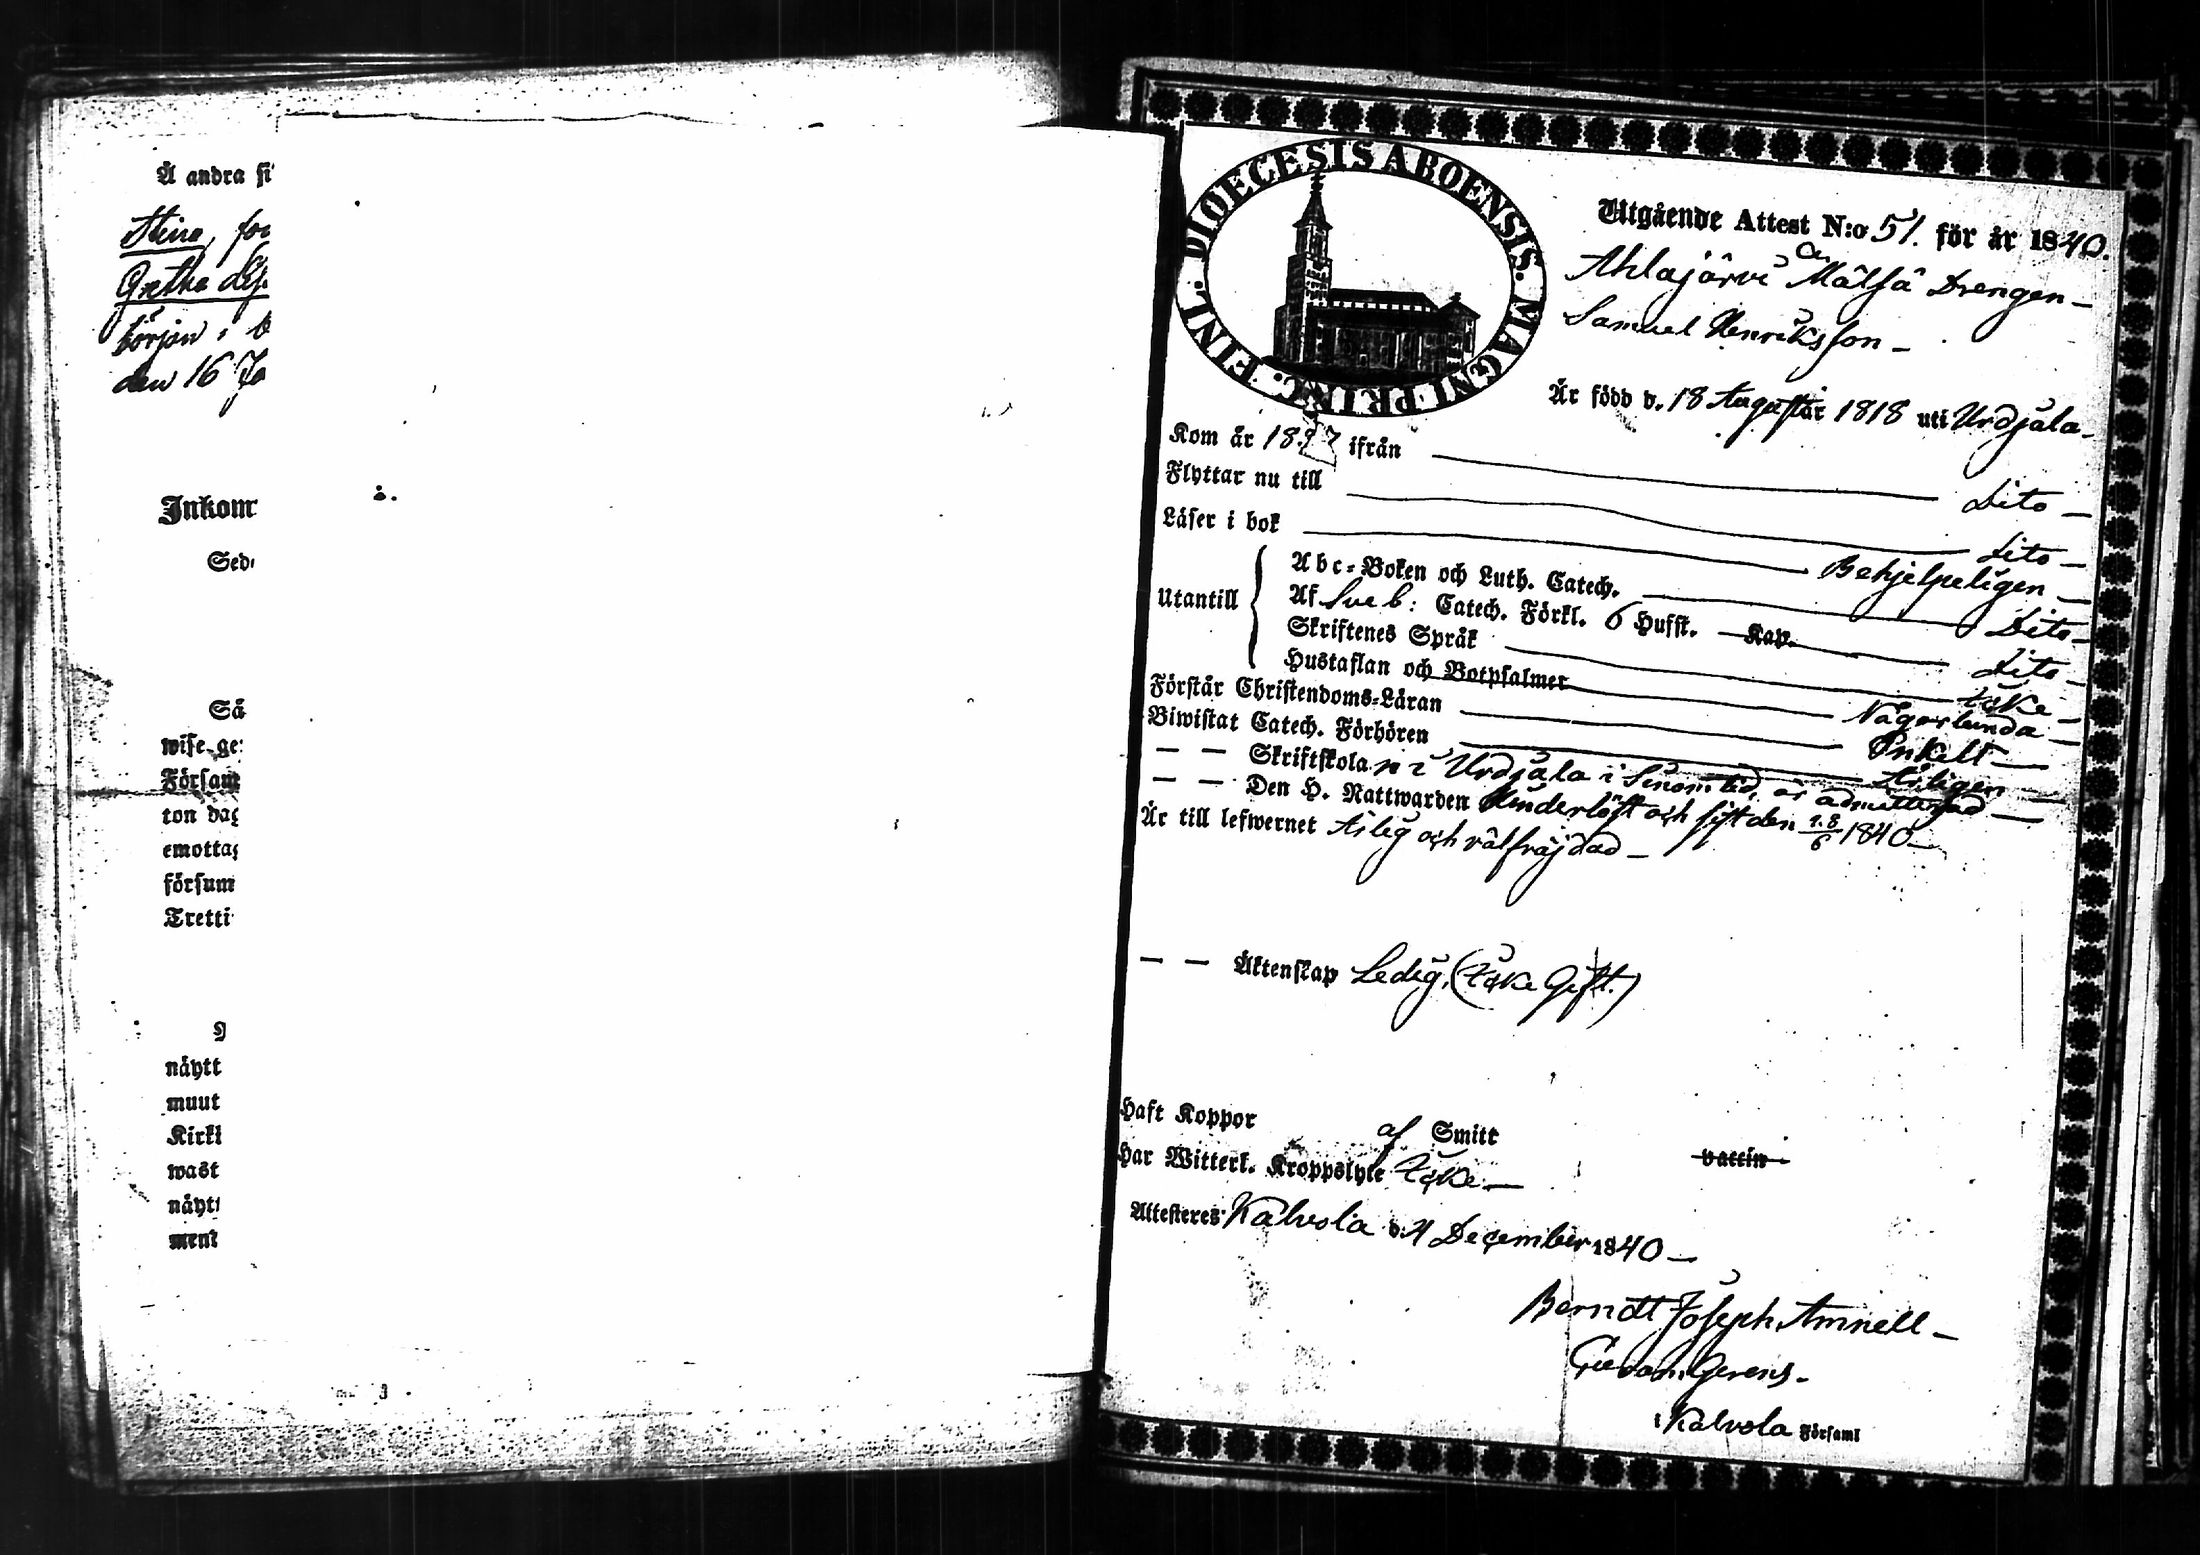 Å andra si
Stina, for
Gretha
början i
den 16 Ja
Inkom
å.
Sed
Så
wise ge
Försam
ton dag
emottag
försum
Tretti
näytt
muut
Kirk
wast
näyt
ment
DIOECESIS ABOENSIS. MAGNI PRINC. FINL.
Utgående Attest N:o 51. för år 1840.
Ahlajärvi Mälsä Drengen
Samuel Henriksson
Är född d. 18 Augusti år 1818 uti Urdjala
Kom år 1837 ifrån Dito
Flyttar nu till Dito
Läser i bok Behjelpeligen
Utantill
Abc-Boken och Luth. Catech. Dito
Af Sveb: Catech. Förkl. 6 Hufst. Kap. Dito
Skriftenes Språk Icke
Hustaflan och Botpsalmer
Förstår Christendoms-Läran Någorlunda
Biwistat Catech. Förhören Enkelt
— — Skriftskola n i Urdjala i sinom tid, är admitterad
— — Den H. Nattwarden och sist den 1840
Är till lefwernet Ärlig och välfräjdad
— — Äktenskap Ledig, (Icke Gift.)
Haft Koppor af Smitt vattin
Har Witterl. Kroppslyte Icke
Attesteres Kalvola d. 4 December 1840
Berndt Joseph Amnell
i Kalvola Församl